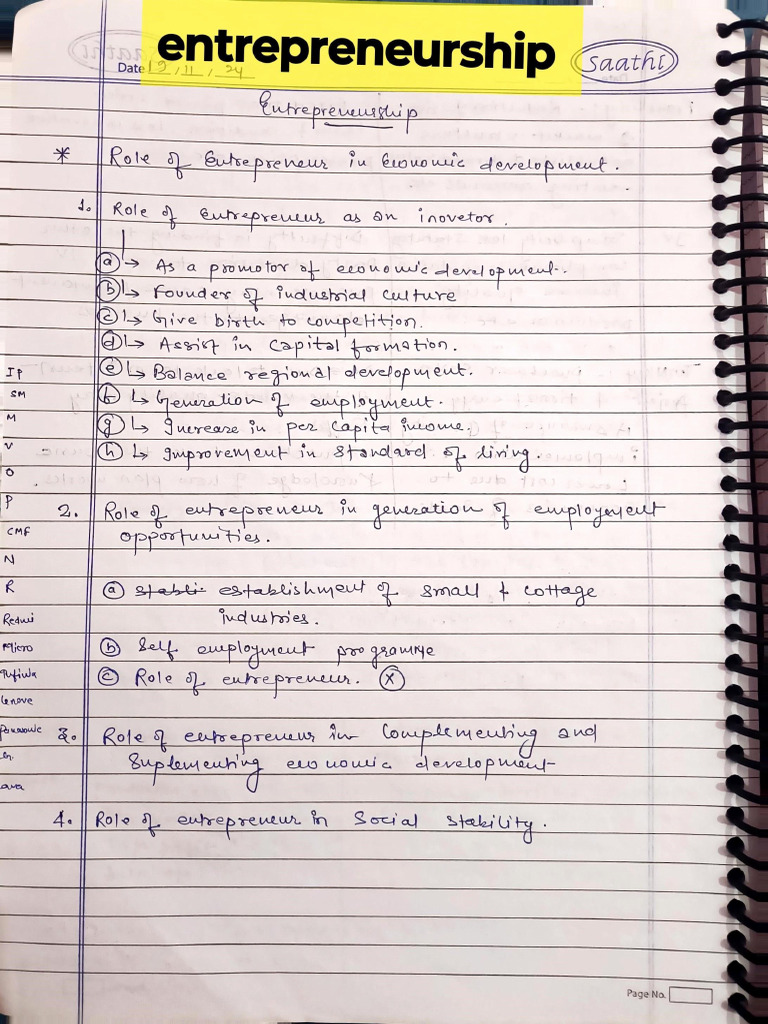 entrepreneurship
saathi
Date 19/11/24
Entrepreneurship
* Role of Entrepreneur in Economic development.
1. Role of entrepreneur as an inovetor.
a ↳ As a promotor of economic development.
b ↳ Founder of industrial culture
c ↳ Give birth to competition.
d ↳ Assist in Capital formation.
e ↳ Balance regional development.
f ↳ Generation of employment.
g ↳ Increase in per capita income.
h ↳ Improvement in Standard of living.
2. Role of entrepreneur in generation of employment
opportunities.
a stabli establishment of small & cottage
industries.
b Self employment programme
c Role of entrepreneur. X
3. Role of entrepreneur in Complementing and
Suplementing economic development
4. Role of entrepreneur in Social Stability.
IP
SM
M
V
O
P
CMF
N
R
Redmi
Micro
Lenove
Panasonic
ava
Page No.